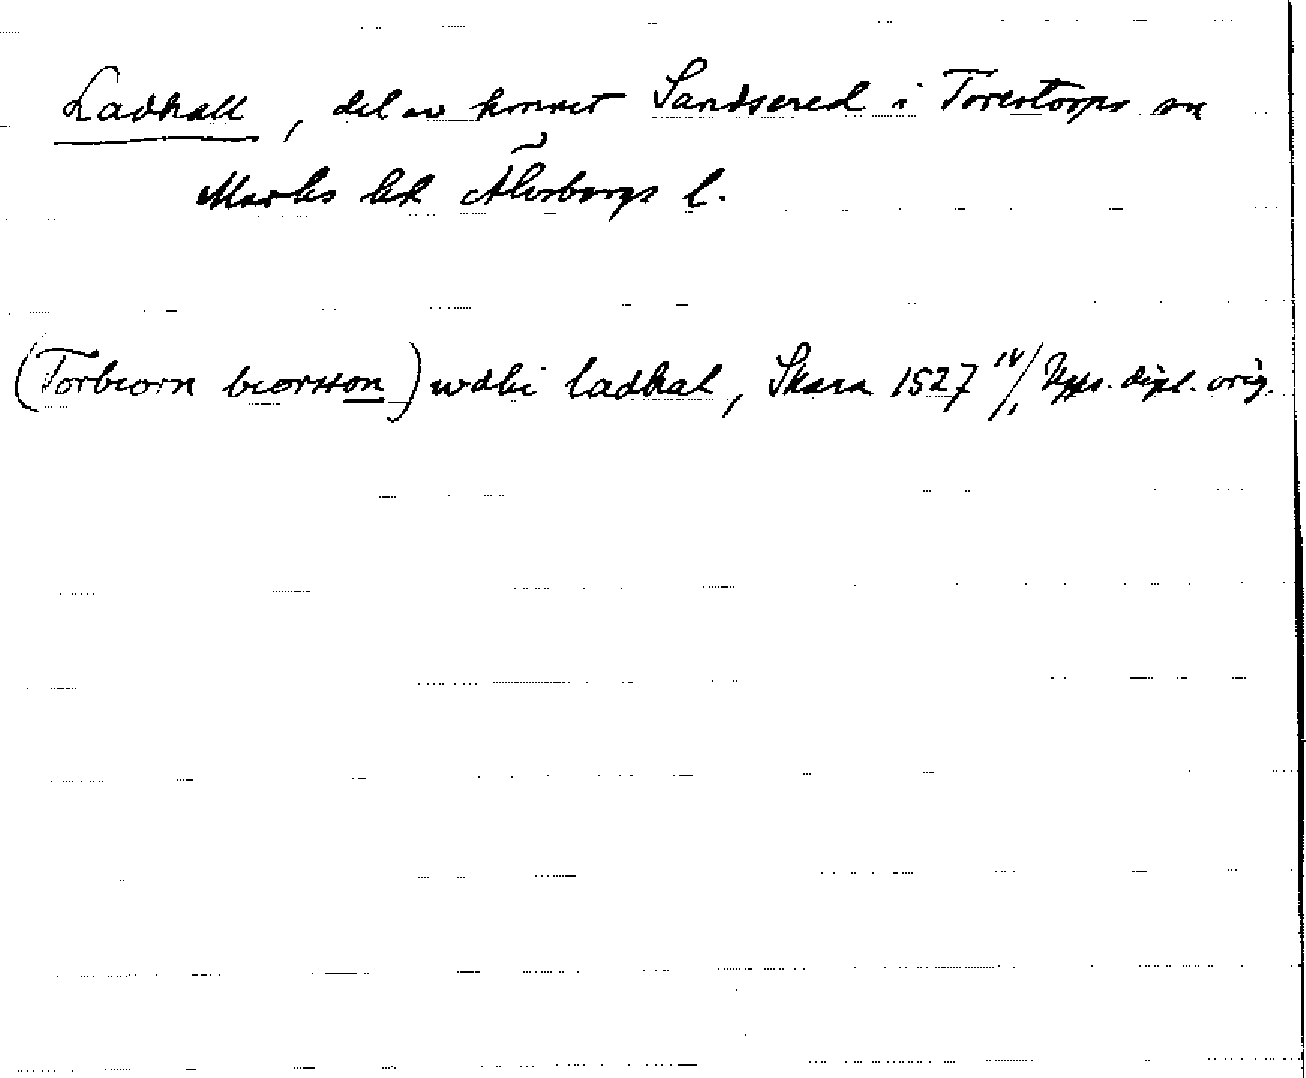 Ladkall, del av hmnet Sandsered i Torestorps sn
Marks hd Älvsborgs l.
(Torbeorn beorsson) wdhi ladkal, Skara 1527 14/1, Upps. dipl. orig.